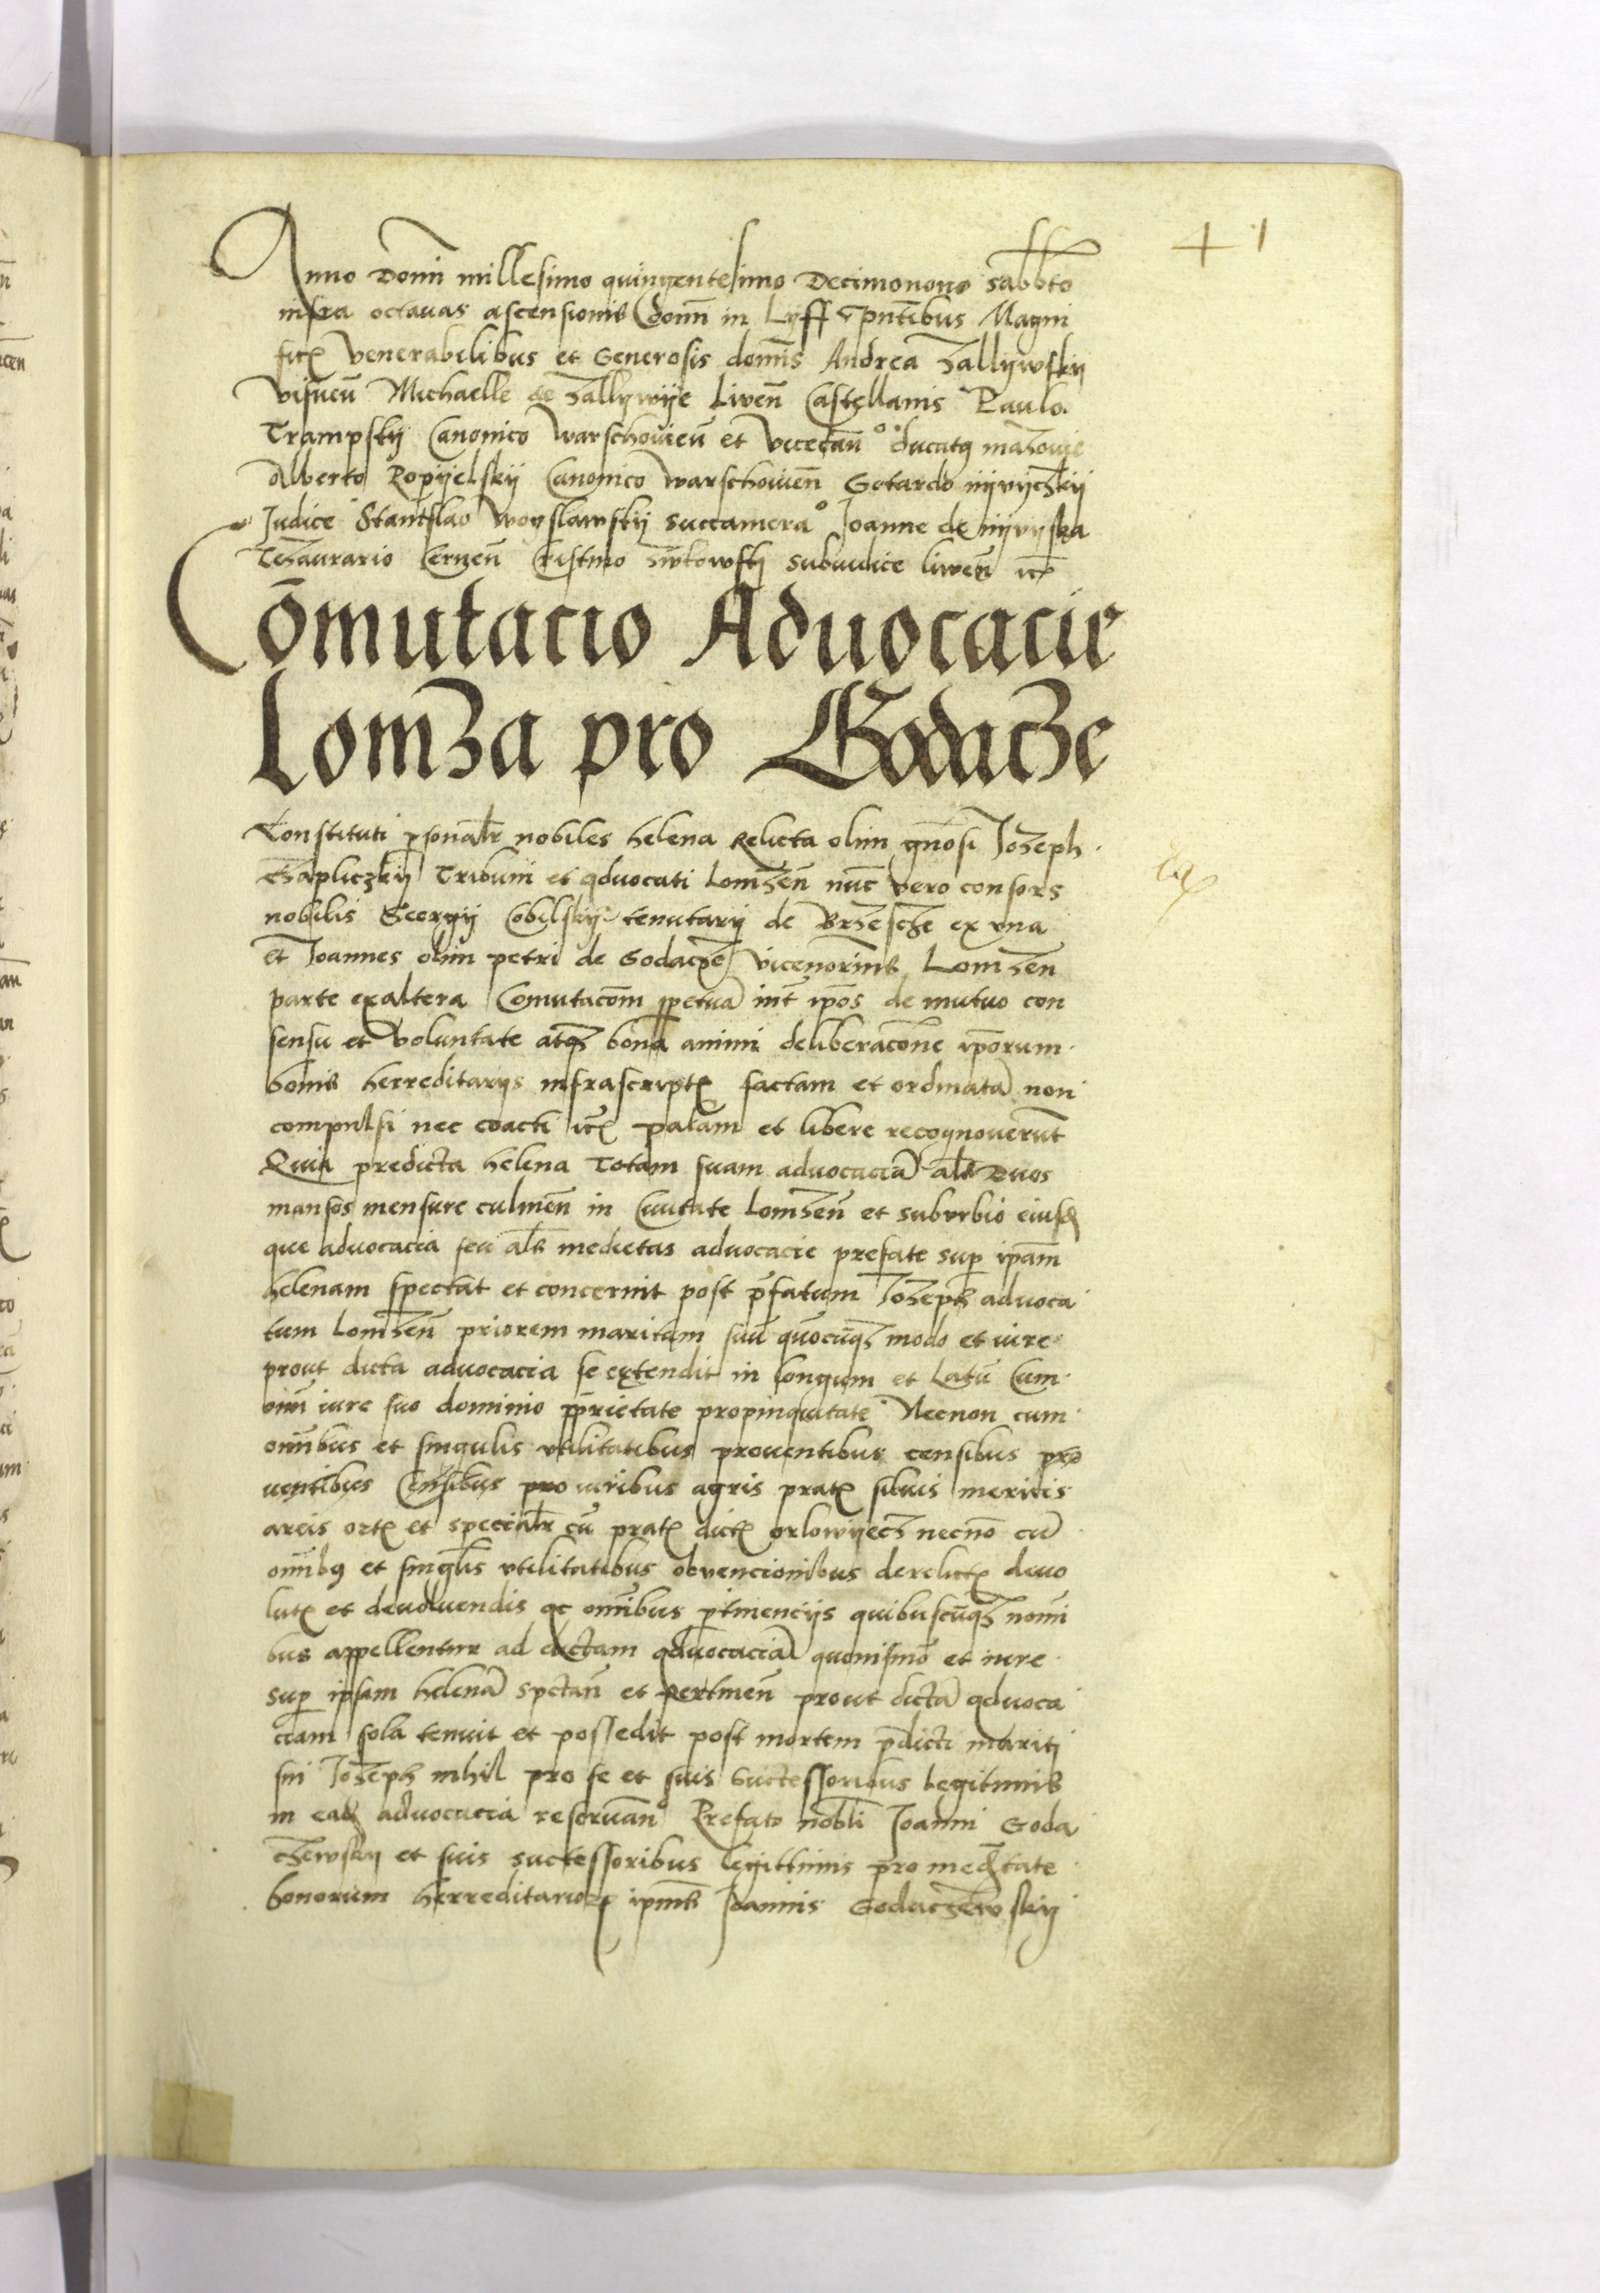 + 1
Anno Domī millesimo quingentesimo Decimonono Sabbto
infra octavas ascensionis Domī in Lyff pn̄tibus Magni
fic͡ Venerabilibus et Generosis domīs Andrea Zallywsky
Visneñ Michaelle de Zallywye Liveñ Castellanis Paulo
Trampsky Canonico Warschovieñ et Vicecañ ducatq mazovie
Alberto Popyelsky Canonico Warschovieñ Gotardo
Judice Stanislao Woyslawsky Succamera° Joanne de
Thezaurario Cerneñ Subiudice Liveñ
Cōmutacio Aduocacie
Lomza pro Godacze
Constituti psonalr nobiles helena Relicta olim gnosi Jozeph
Tribuni et advocati Lomzeñ nūc vero consors
nobilis Georgij Cobilsky tenutarij de Brzescze ex vna
Et Joannes olim petri de Godacze vicenorius Lomzen
parte ex altera Comutacōm ppetuā int ipos de mutuo con
sensu et voluntate atqz bona animi deliberacōne ipōrum
bonis herreditarijs infrascript͡ factam et ordinatā non
compulsi nec coacti itc͡ palam et libere recognoverunt
Quia predicta helena Totam suam advocaciā als Duos
mansos mensure culmeñ in Civitate Lomzeñ et subvrbio eiusd
que advocacia seu als medietas advocacie prefate sup ipam
helenam spectat et concernit post pfatum Jozeph advoca
tum Lomzeñ priorem maritum suū quocūqz modo et iure
prout dicta advocacia se extendit in longum et latū Cum
omī iure suo dominio pprietate propinquitate Necnon cum
omībus et singulis vtilitatibus proventibus censibus pro
ventibus Censibus pro viribus agris prat͡ silvis mericis
areis ort͡ et specialr cū prat͡ dict͡ orlowyecz necnō cū
omībq et singlis vtilitatibus obvencionibus derelict͡ devo
lut͡ et devolvendis ac omībus ptinencijs quibuscūqz nomī
bus appellentur ad dictam advocaciā quovismō et iure
sup ipsam helenā spectañ et pertineñ prout dictā advoca
ciam sola tenuit et possedit post mortem pdicti mariti
sui Jozeph nihil pro se et suis Successoribus legitimis
in ead advocacia reservañ Prefato nobli Joanni Goda
czewsky et suis successoribus legittimis pro medtate
bonorum herreditarior ipius Joannis Godaczewsky